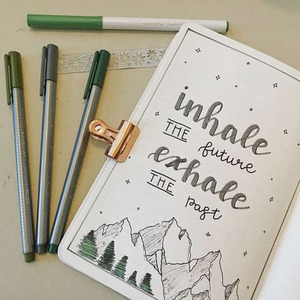 inhale
THE future
exhale
THE past